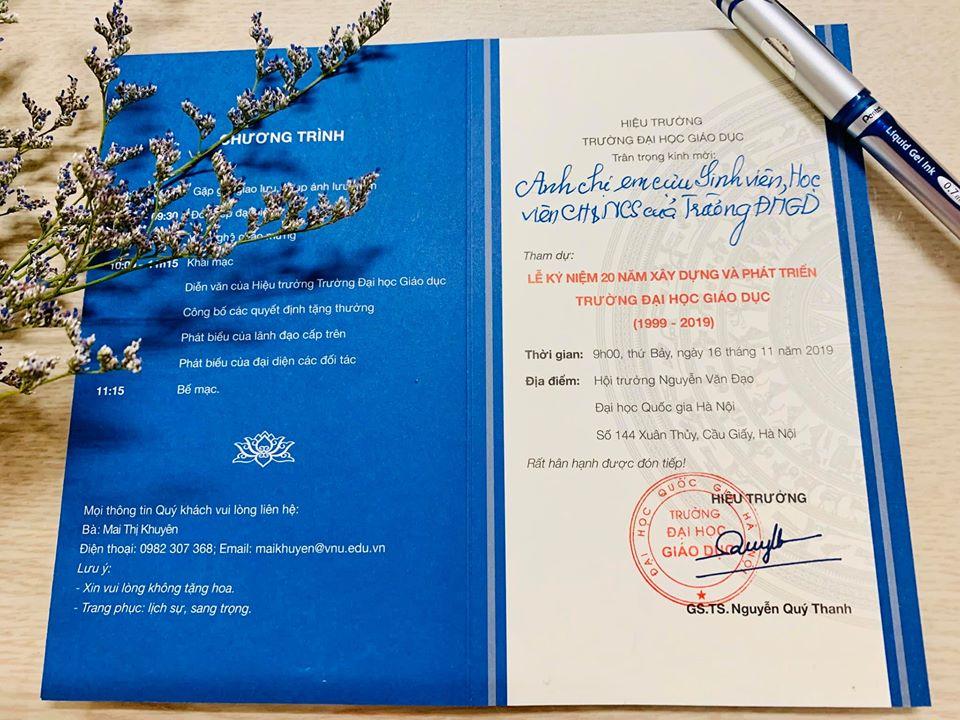 CHƯƠNG TRÌNH
Gặp giao lưu, ụp ảnh lưu
09:30
11h15 Khai mạc
Diễn văn của Hiệu trưởng Trường Đại học Giáo dục
Công bố các quyết định tặng thưởng
Phát biểu của lãnh đạo cấp trên
Phát biểu của đại diện các đối tác
11:15 Bế mạc.
Mọi thông tin Quý khách vui lòng liên hệ:
Bà: Mai Thị Khuyên
Điện thoại: 0982 307 368; Email: maikhuyen@vnu.edu.vn
Lưu ý:
- Xin vui lòng không tặng hoa.
- Trang phục: lịch sự, sang trọng.
HIỆU TRƯỞNG
TRƯỜNG ĐẠI HỌC GIÁO DỤC
Trân trọng kính mời:
Anh chị em cựu Sinh viên, Học
viên CH & NCS của Trường ĐHGD
Tham dự:
LỄ KỶ NIỆM 20 NĂM XÂY DỰNG VÀ PHÁT TRIỂN
TRƯỜNG ĐẠI HỌC GIÁO DỤC
(1999 - 2019)
Thời gian: 9h00, thứ Bảy, ngày 16 tháng 11 năm 2019
Địa điểm: Hội trường Nguyễn Văn Đạo
Đại học Quốc gia Hà Nội
Số 144 Xuân Thủy, Cầu Giấy, Hà Nội
Rất hân hạnh được đón tiếp!
HIỆU TRƯỞNG
ĐẠI HỌC QUỐC GIA HÀ NỘI
TRƯỜNG
ĐẠI HỌC
GIÁO DỤC
GS.TS. Nguyễn Quý Thanh
Pentel
Liquid Gel Ink
0.7